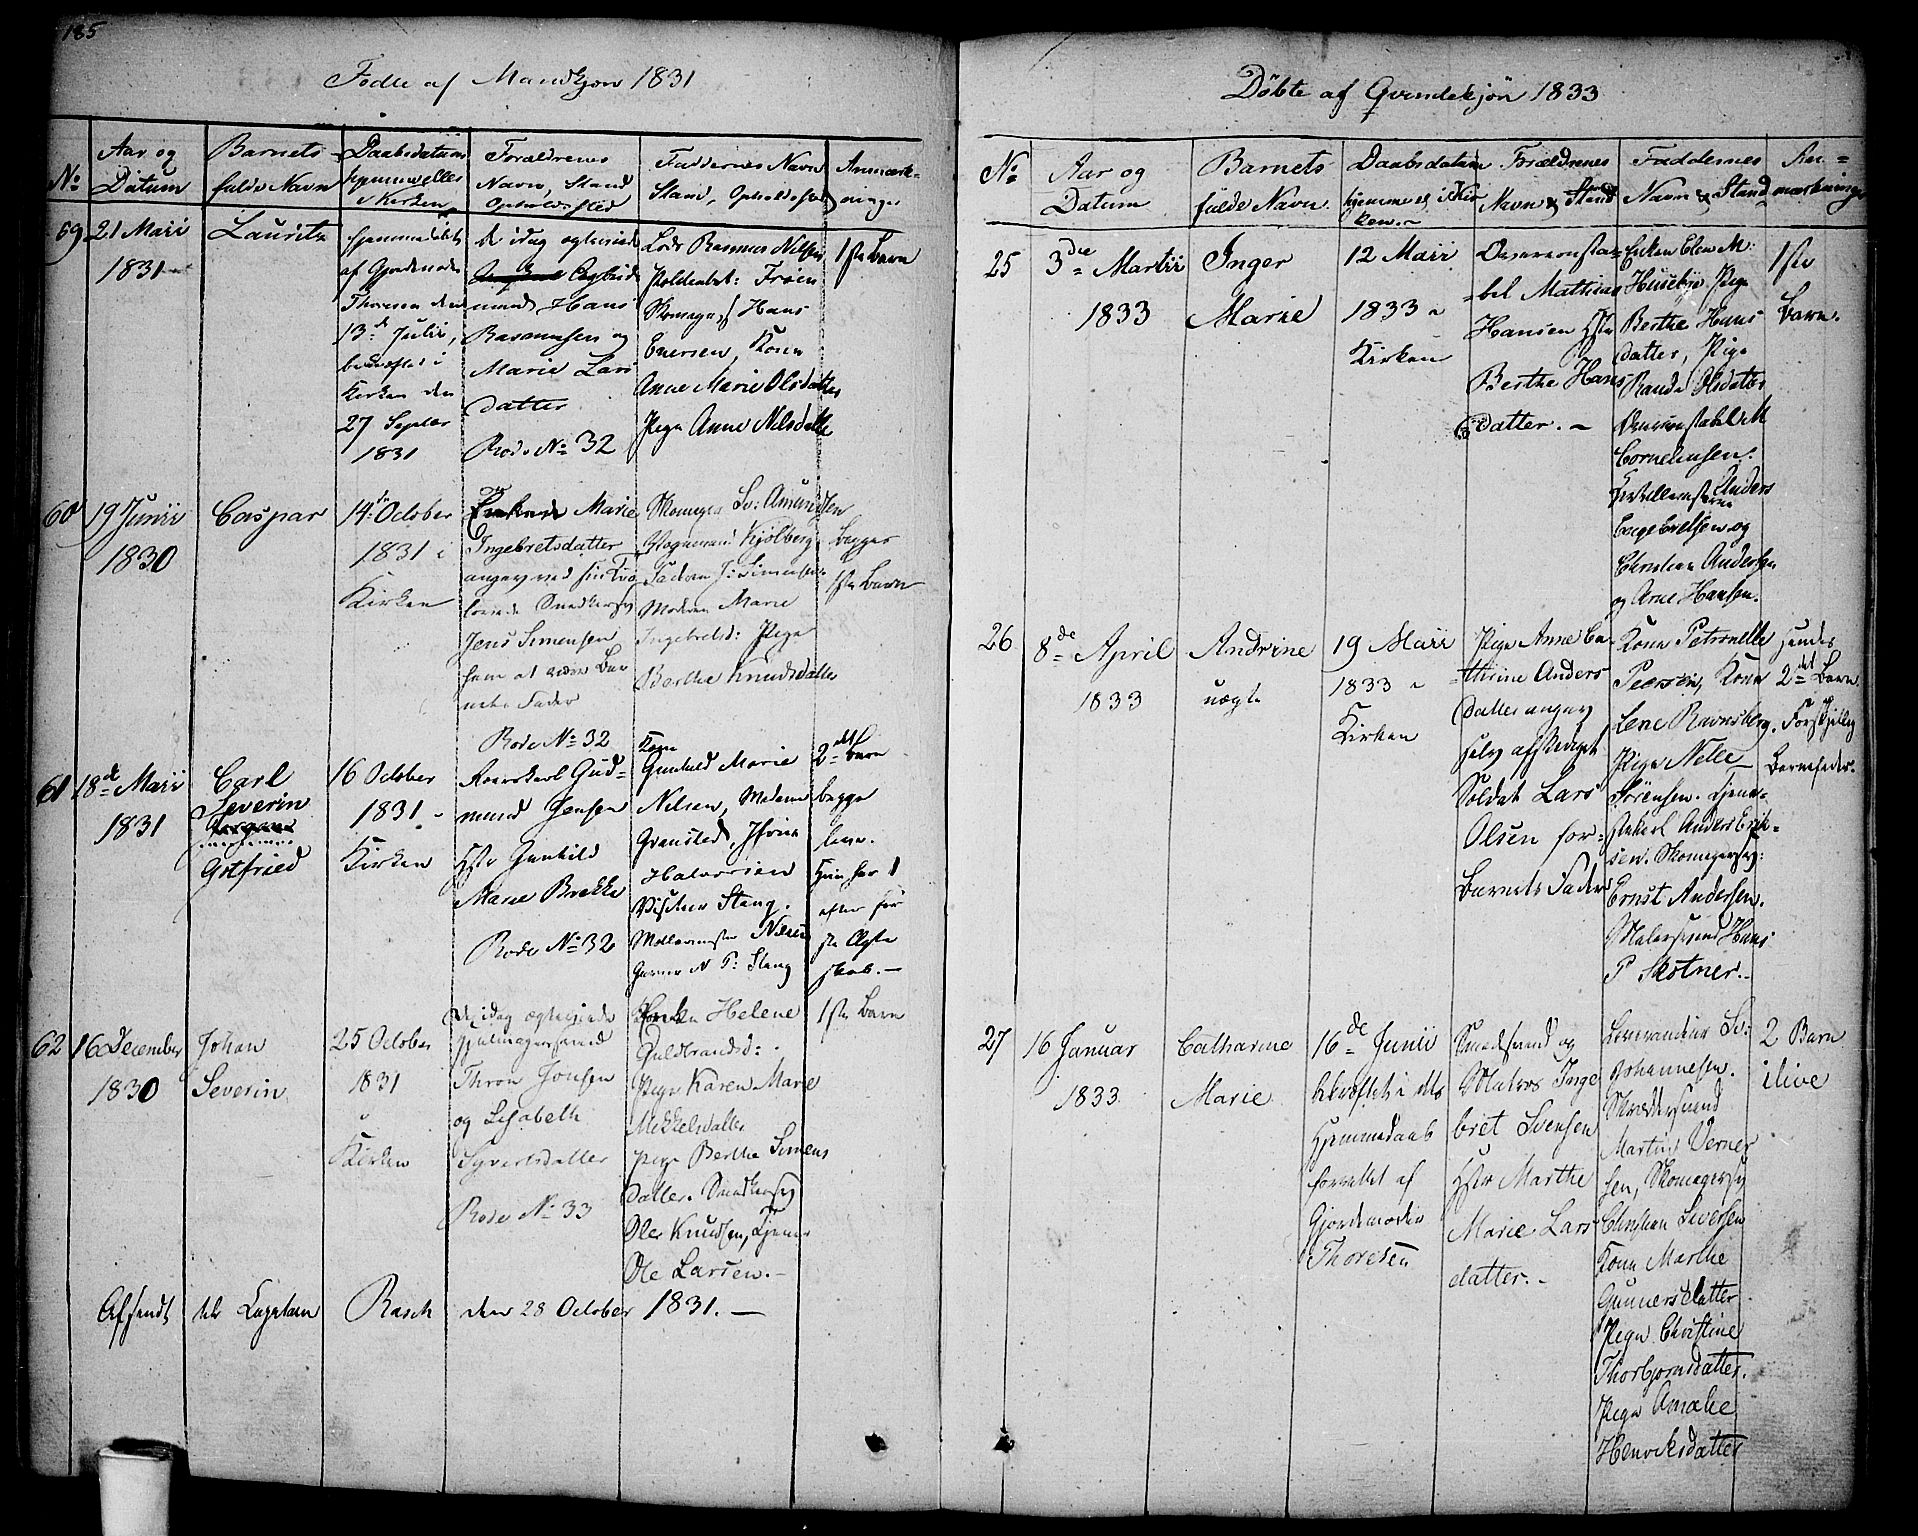 185
Fødte af Mandkjøn 1831
No
Aar og
Datum
Barnets
fulde Navn
Daabsdatum
hjemme eller
i Kirken
Forældrenes
Navn, Stand
Opholdssted
Faddernes Navn
Stand, Opholdssted
Anmærk-
ninger
59
21 Maii
1831
Lauritz
hjemmedøbt
af Gjordemoder
Thoresen den
13de Julii,
bekræftet i
Kirken den
27 Septbr
1831
de idag egteviede
mand Hans
Rasmussen og
Marie Lars
datter
Rode No 32
Lods Rasmus Nilsen
Skomager Hans
Evensen, Kone
Anne Marie Olsdatter
Pige Anne Nilsdatter
1ste Barn
60
19 Junii
1830
Caspar
14de October
1831 i
Kirken
Marie
Ingebretsdatter
angav ved sin
Jens Simensen
ham at være Bar
nets Fader
Rode No 32
Skomager Sv: Amundsen
Vognmand Kjølberg
Faderen J: Simensen
Moderen Marie
Ingebretsd: Pige
Berthe Knudsdatter
begges
1ste Barn
61
18de Maii
1831
Carl
Severin
Gotfried
16 October
1831
Kirken
Gud-
mund Jensen
Hstr Gunhild
Marie Brekke
Rode No 32
Kone
Gunhild Marie
Nilsen, Madame
Grønsted,
Halvorsen
Stang.
Nilsen
N P: Stang
2det Barn
begge
leve.
Hun har 1
efter før
ste Ægte
skab.-
62
16 December
1830
Johan
Severin
25 October
1831
i
Kirken
De idag egteviede
Thron Jonsen
og Lisabeth
Syvertsdatter
Rode No 33
Helene
Guldbrandsd:
Pige Karen Marie
Mekkelsdatter
Pige Berthe Simens
datter. Smedkarsv
Ole Knudsen, Tjener
Ole Larsen.-
1ste Barn
Afsendt til Capitain Rasch den 28 October 1831.-
Døbte af Qvindekjøn 1833
No
Aar og
Datum
Barnets
fulde Navn
Daabsdatum
hjemme el. i Kir
ken.-
Forældrenes
Navn & Stand
Faddernes
Navn & Stand
An-
mærkninger
25
3die Martii
1833
Inger
Marie
12 Maii
1833 i
Kirken
bel Mathias
Hansen Hstr
Berthe Hans
datter.-
Enken Elen M:
Huseby Pige
Berthe Hans
datter, Pige
Randi Olsdatter
M
Cornelinsen.
Anders
Engebretsen og
Christian Andersen
og Arne Hansen.
1ste
Barn.
26
8de April
1833
Andrine
uægte
19 Maii
1833 i
Kirken
Pige Anne Ca-
thrine Anders
datter angav
selv afskediget
Soldat Lars
Olsen for
Barnets Fader
Kone Petronelle
Peersen, Kone
Lene Ravnsberg,
Pige Nelle
Sørensen. Tjene-
stekarl Anders Erik-
sen. Skomagersv:
Ernst Andersen.
Malersvend Hans
P Skotner.-
hendes
2det Barn
Forskjellig
Barnefader.
27
16 Januar
1833
Catharine
Marie
16de Junii
bekræftet i dets
Hjemmedaab
forrettet af
Gjordemoder
Thoresen
Smedsvend og
Matros Inge
bret Svensen
Hstr Marthe
Marie Lars
datter.-
Sv:
Johannesen.
Skreddersvend
Martin Verner
sen, Skomagersv
Christian Siversen
Kone Marthe
Gunnersdatter
Pige Christine
Thorbjørnsdatter.
Pige Amalie
Henriksdatter
2 Barn
ilive